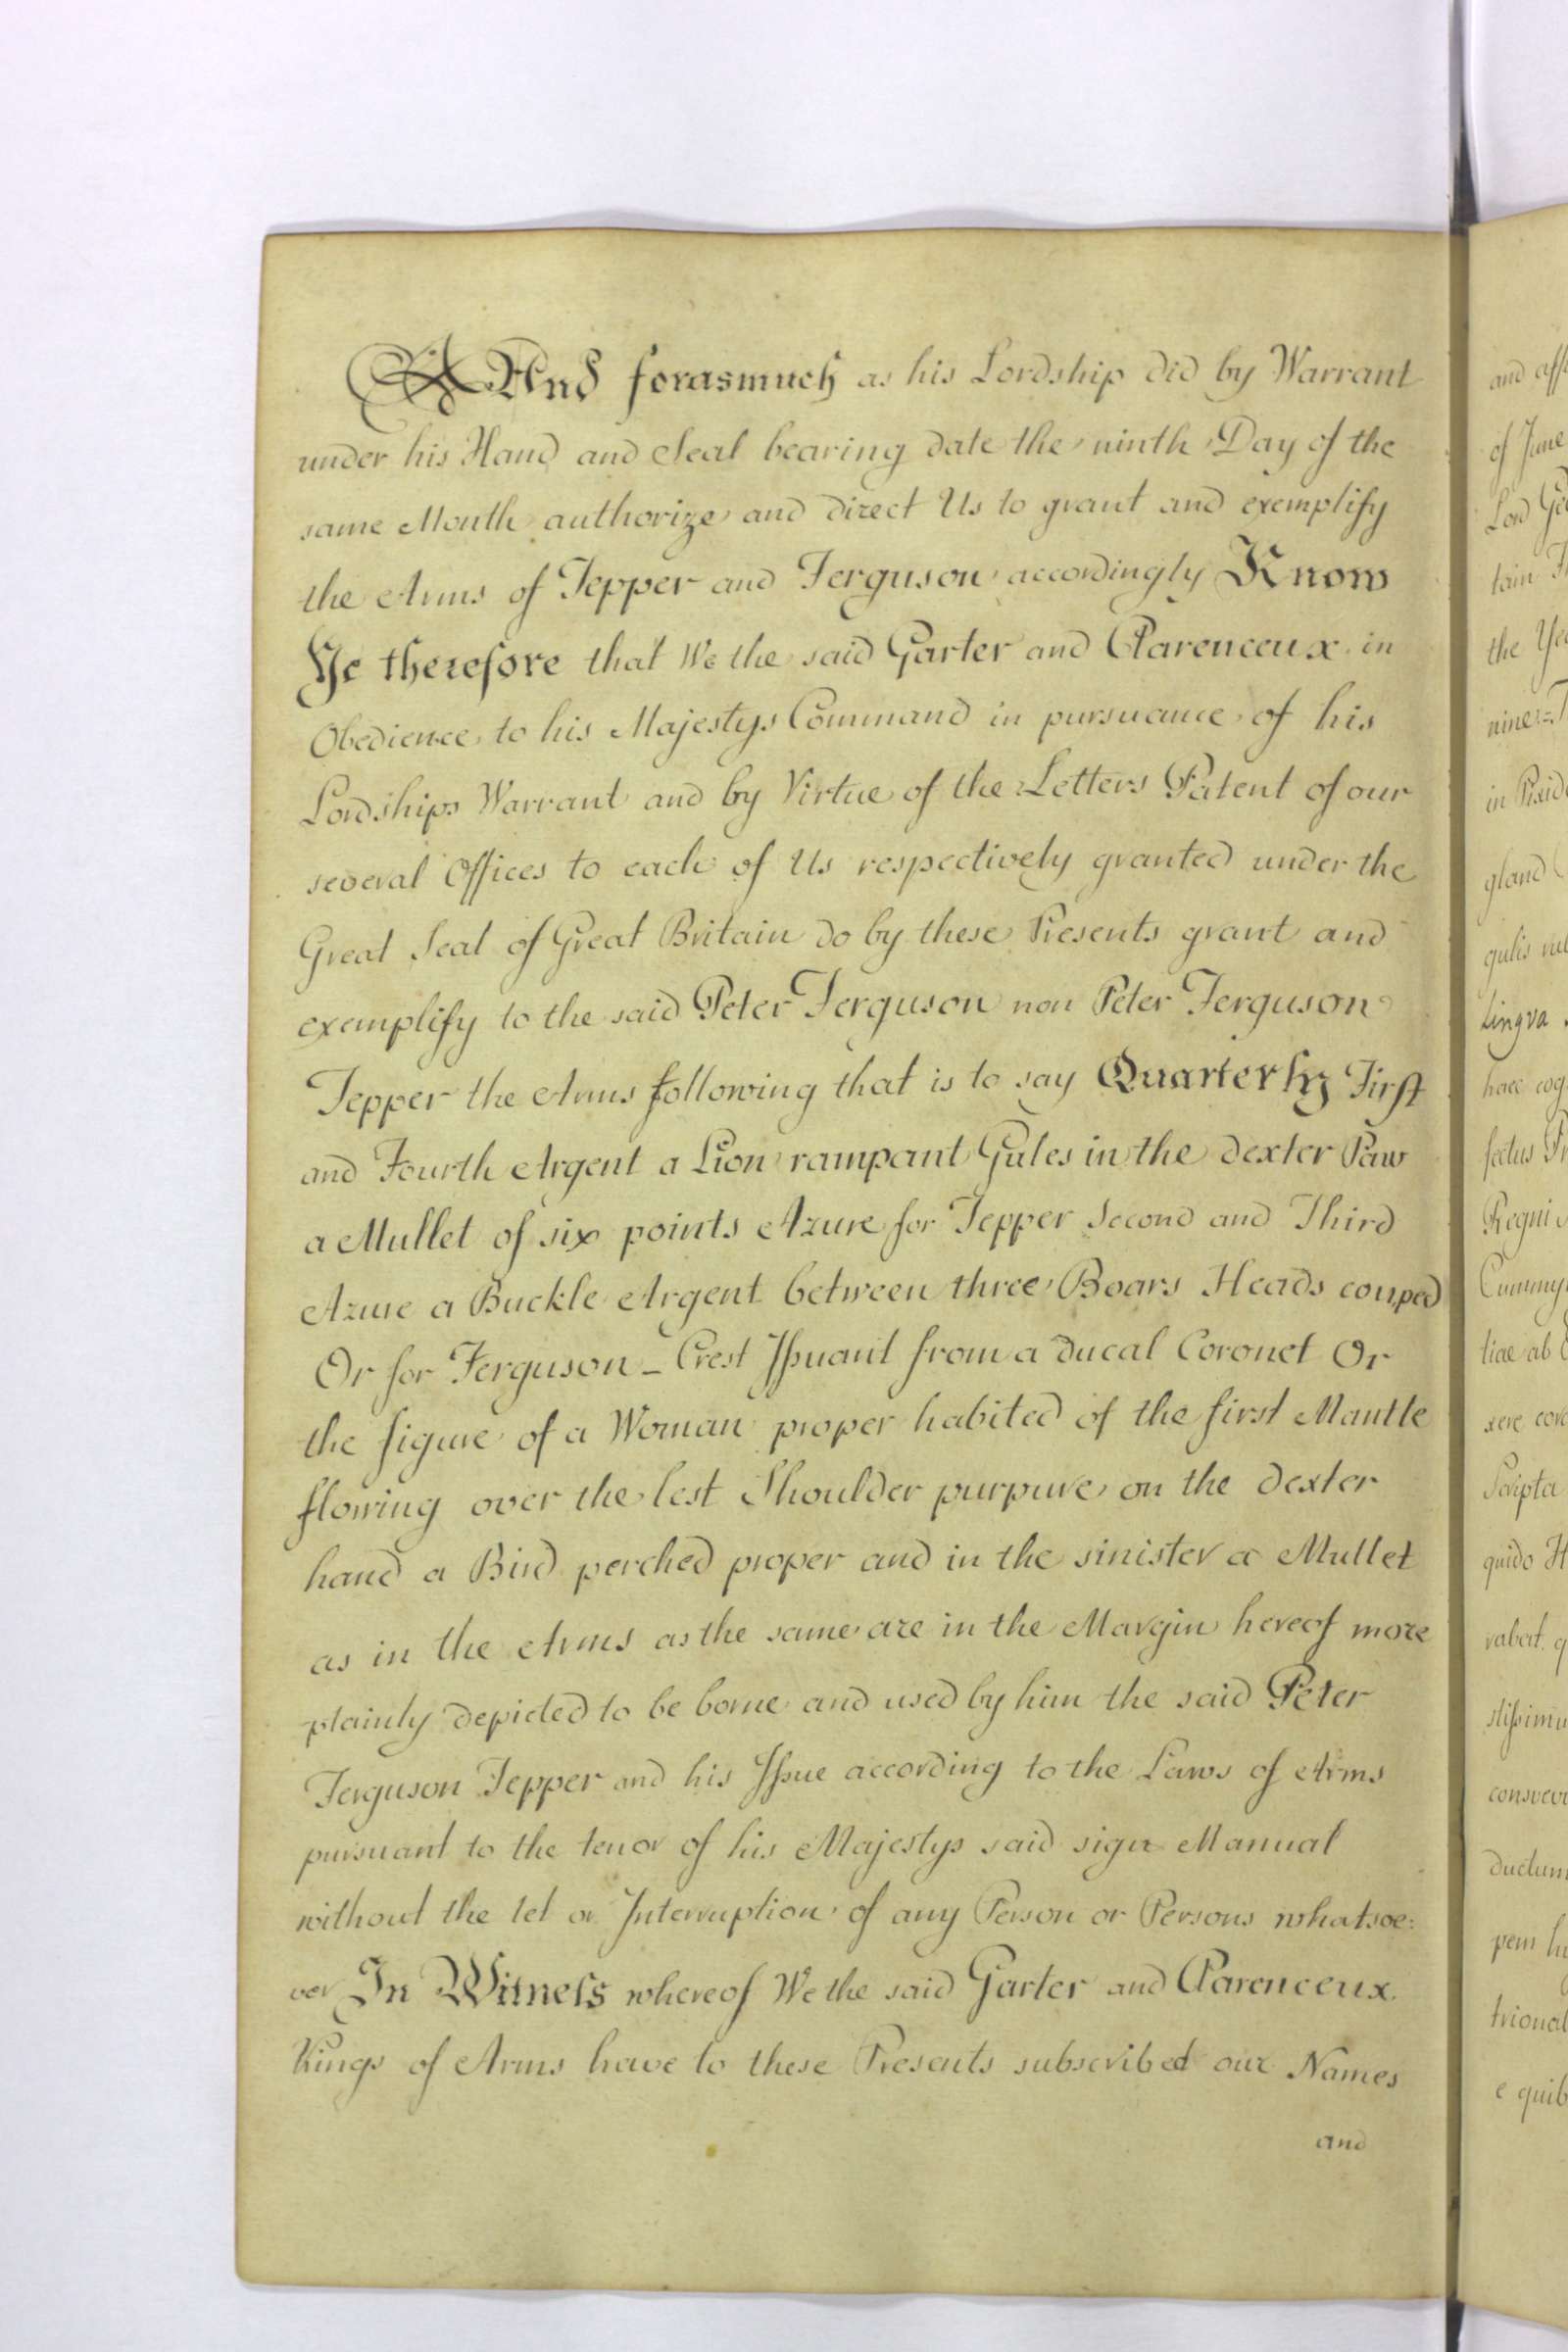 And forasmuch as his Lordship did by Warrant
under his Hand and Seal bearing date the ninth Day of the
same Month authorize and direct Us to grant and exemplify
the Arms of Tepper and Ferguson accordingly Know
Ye therefore that We the said Garter and Clarenceux in
Obedience to his Majestys Command in pursuance of his
Lordships Warrant and by Virtue of the Letters Patent of our
several Offices to each of Us respectively granted under the
Great Seal of Great Britain do by these Presents grant and
exemplify to the said Peter Ferguson non Peter Ferguson
Tepper the Arms following that is to say Quarterly First
and Fourth Argent a Lion rampant Gules in the dexter Paw
a Mullet of six points Azure for Tepper Second and Third
Azure a Buckle Argent between three Boars Heads couped
Or for Ferguson _ Crest Issuant from a ducal Coronet Or
the figure of a Woman proper habited of the first Mantle
flowing over the lest Shoulder purpure on the dexter
hand a Bird perched proper and in the sinister a Mullet
as in the Arms as the same are in the Margin hereof more
plainly depicted to be borne and used by him the said Peter
Ferguson Tepper and his Issue according to the Laws of Arms
pursuant to the tenor of his Majestys said sign Manual
without the let or Interruption of any Person or Persons whatsoe:
ver In Witness whereof We the said Garter and Clarenceux
Kings of Arms have to these Presents subscribed our Names
and
and
of June
Lord
tain
the
in
gland
gulis
Lingva
haec
Regni
tiae ab
Scripta
quido
e